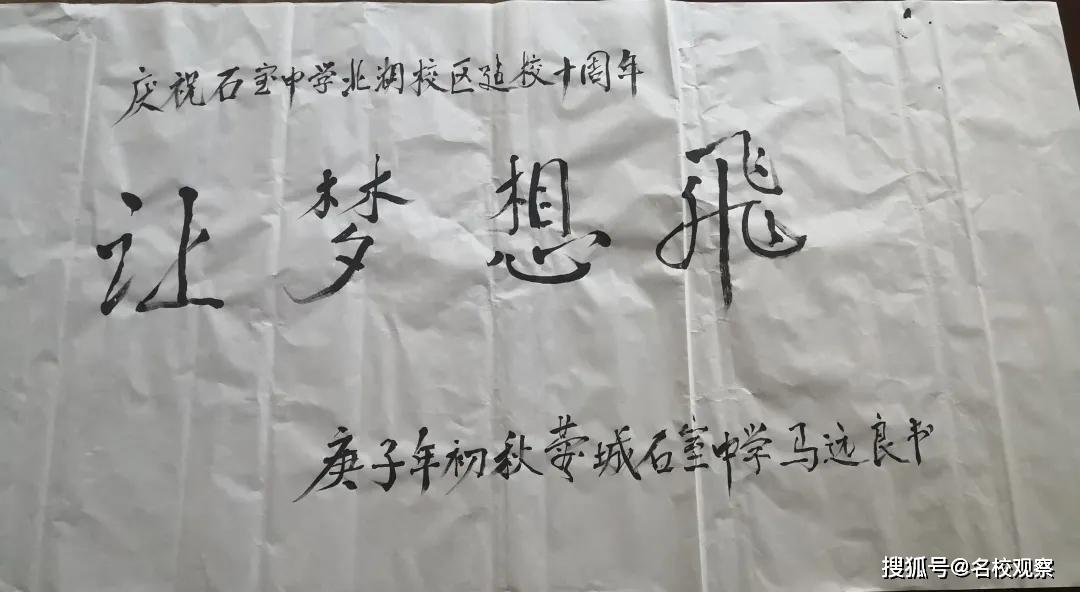 庆祝石室中学北湖校区建校十周年
让梦想飛
庚子年初秋蓉城石室中学马远良书
搜狐号@名校观察